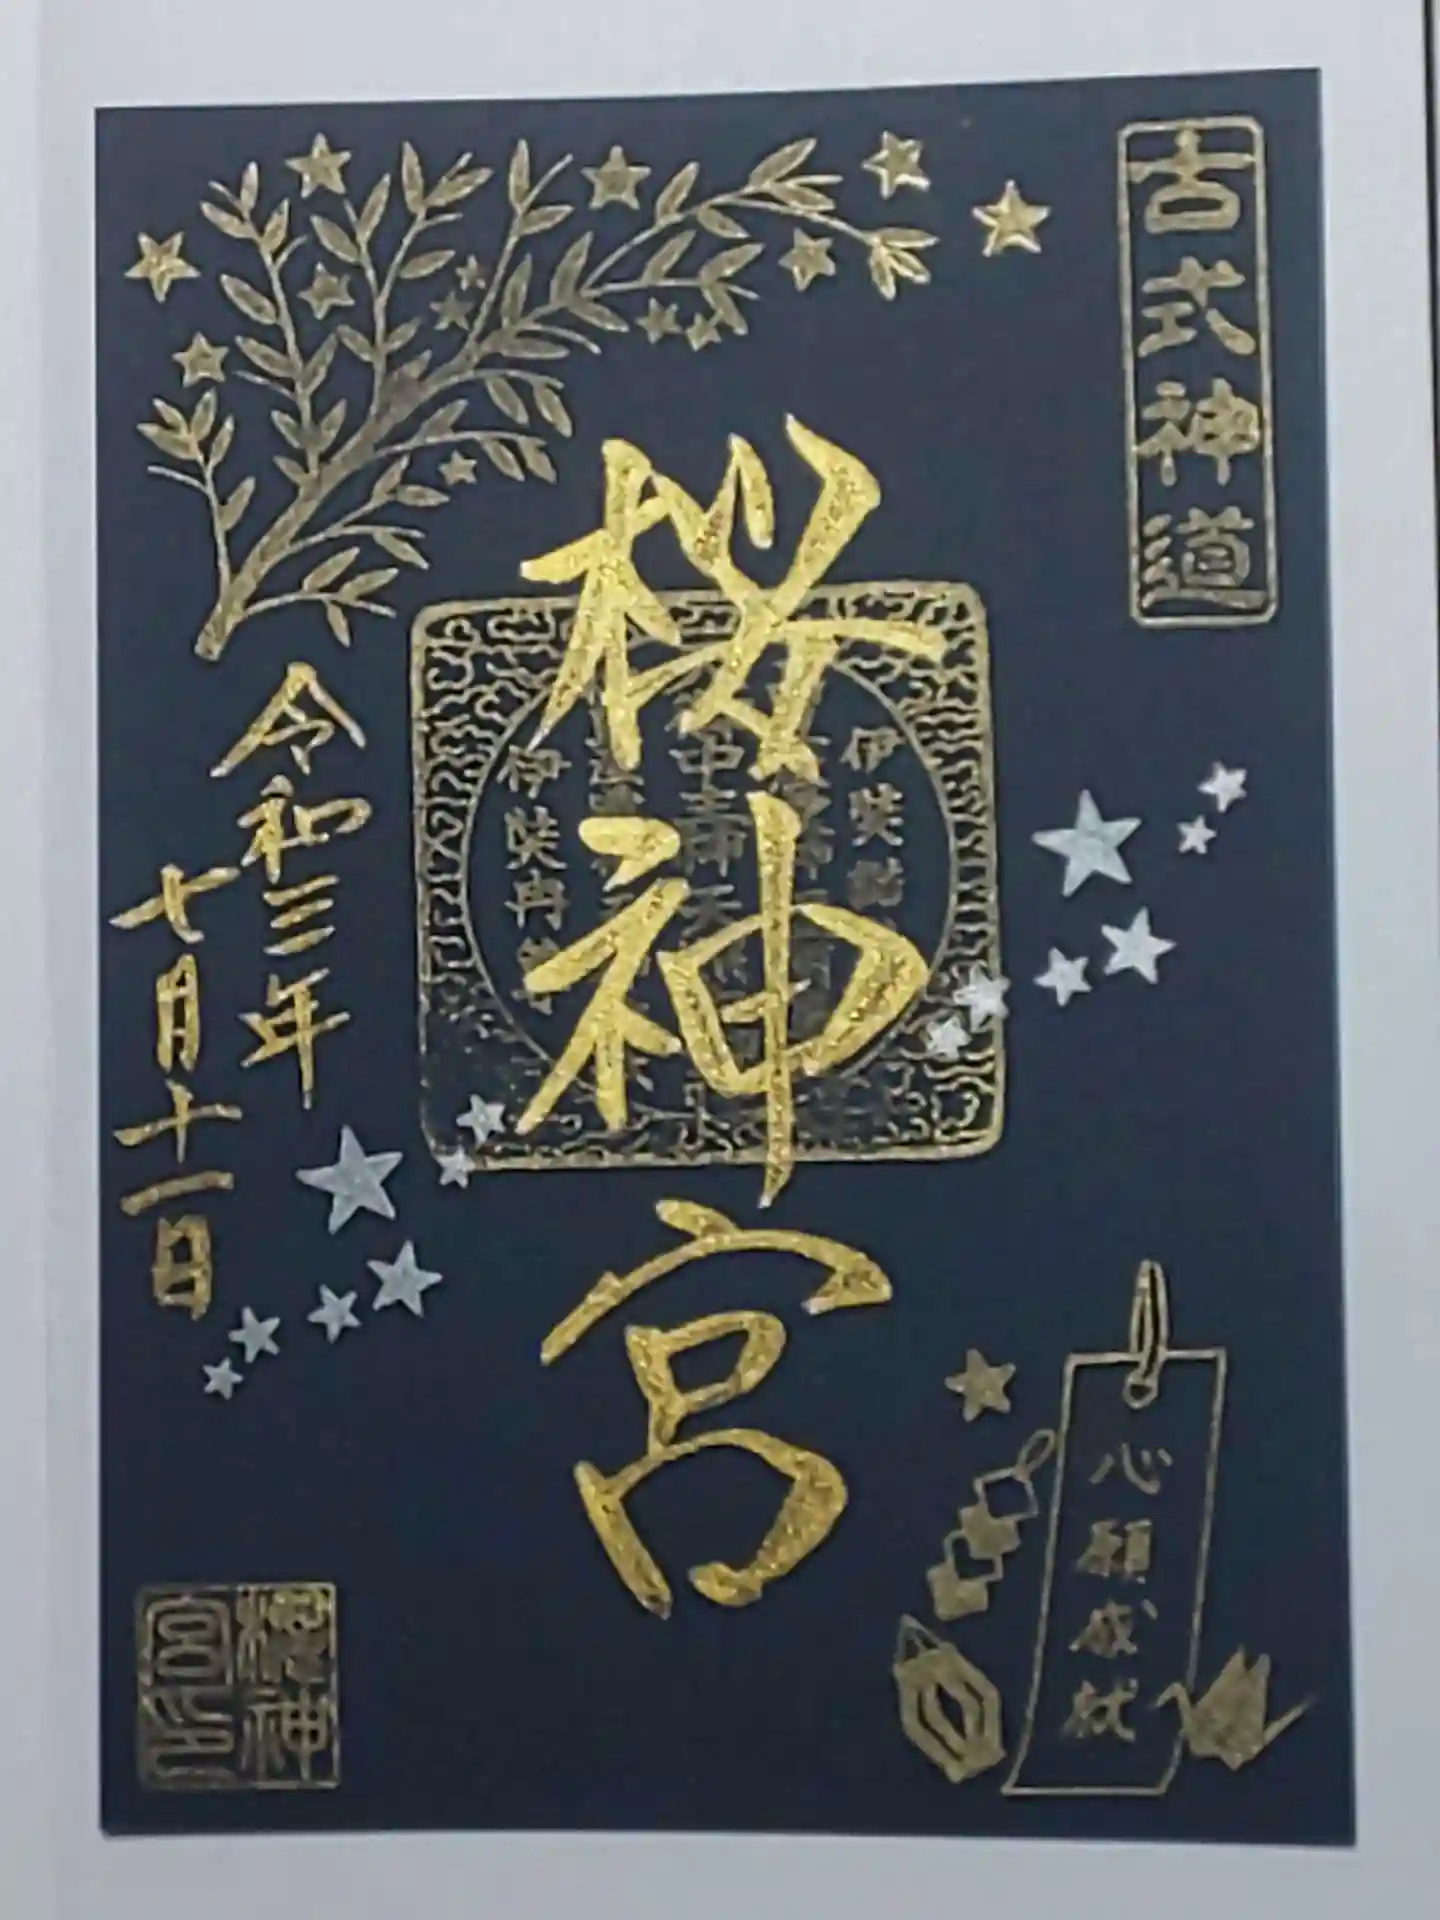 古式神道
桜神宮
伊弉諾
伊弉冉尊
令和三年
七月十一日
心願成就
桜神
宮印